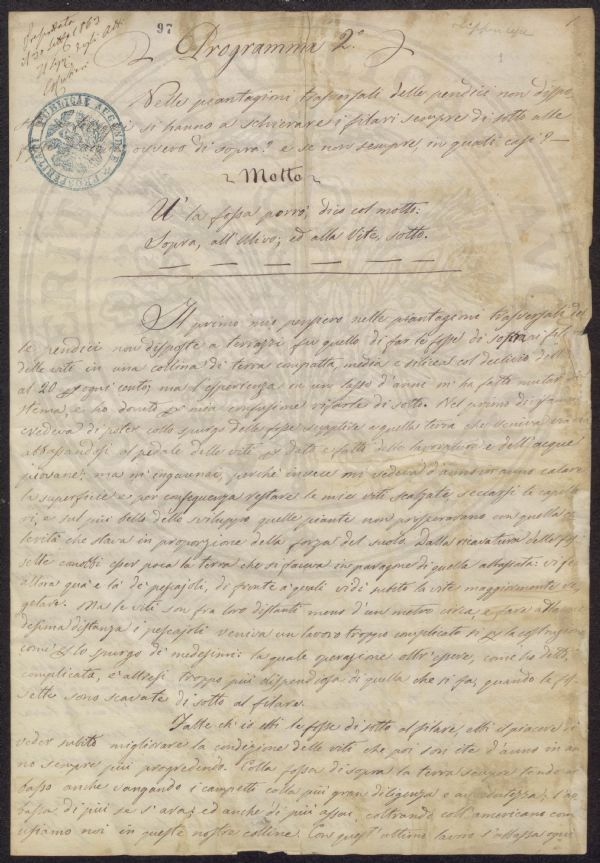 97
1
Presentato
il 30 Sett. 1863
Programma 2.º
Nelle piantagioni trasversali delle pendici non dispo-
si hanno a schierare i filari sempre di sotto alle
ovvero di sopra? e se non sempre, in quali casi? —
PUBLICAE
PROSPERITATI
Motto
U' la fossa porrò, dico col motto:
Sopra, all'Ulivo; ed alla Vite, sotto.
Il primo mio pensiero nelle piantagioni trasversali del-
le pendici non disposte a terrazzi fu quello di far le fosse di sopra ai fil.
delle viti in una collina di terra compatta, media e silicea col declivio dell'
al 20 per ogni cento; ma l'esperienza in un lasso d'anni m'ha fatto mutar si-
stema, e ho dovuto per mia confusione rifarle di sotto. Nel primo
credeva di poter collo spurgo delle fosse supplire a quella terra che veniva
abbassandosi al pedale delle viti per dato e fatto della lavoratura e dell'acque
piovane; ma m'ingannai, perchè invece mi vedeva d'anno in anno calare
la superficie e per conseguenza restare le mie viti scalzate, seccarsi le capella-
ri, e sul più bello dello sviluppo quelle piante non prosperavano con quella
che stava in proporzione della forza del suolo. Dalla vuotatura delle fos-
sette conobbi esser poca la terra che si faceva in paragone di quella abbassata: vi feci
allora quà e là de' pescajoli, di fronte a' quali vidi subito la vite maggiormente ve-
getare. Ma le viti son fra loro distanti meno d'un metro circa, e fare alla me-
desima distanza i pescajoli veniva un lavoro troppo complicato sì per la costruzione
come per lo spurgo de' medesimi: la quale operazione oltr'essere, come ho detto,
complicata, è altresì troppo più dispendiosa di quella che si fa, quando le fos-
sette sono scavate di sotto al filare.
Fatte ch'io ebbi le fosse di sotto al filare, ebbi il piacere di
veder subito migliorare la condizione delle viti che poi son ite d'anno in an-
no sempre più progredendo. Colla fossa di sopra la terra sempre tende al
basso anche vangando i campetti colla più gran diligenza e accuratezza; s'ab-
bassa di più se s'ara; ed anche di più assai, coltrando coll'americano con
usiamo noi in queste nostre colline. Con quest'ultimo lavoro s'abbassa ogni